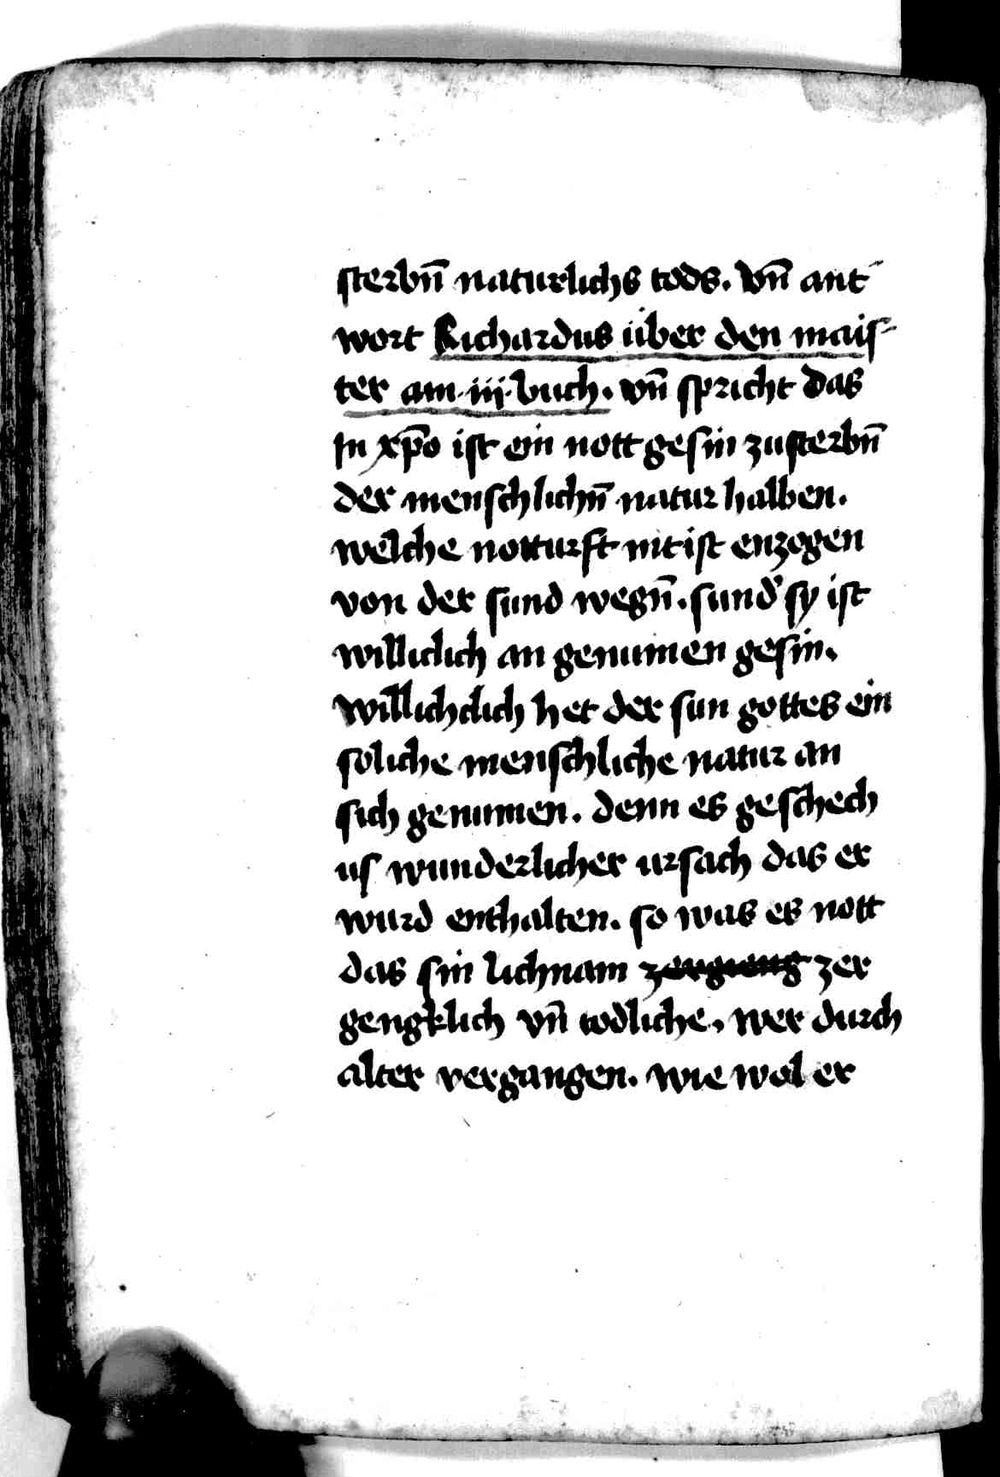 sterbn̄ naturlichs tods. Vn̄ ant
wort Richardus über den mais-
ter am ·iii· buch. vn̄ spricht das
In xp̄o ist ein nott gesin zusterbn̄
der menschlichn̄ natur halben.
welche notturft nit ist enzogen
von der sund wegn̄. sund' sy ist
williclich an genumen gesin.
Willichclich het der sun gottes ein
soliche menschliche natur an
sich genumen. denn es geschech
us wunderlicher ursach das er
wurd enthalten. so was es nott
das sin lichnam zergieng zer
gengklich vn̄ todliche, wer durch
alter vergangen. wie wol er